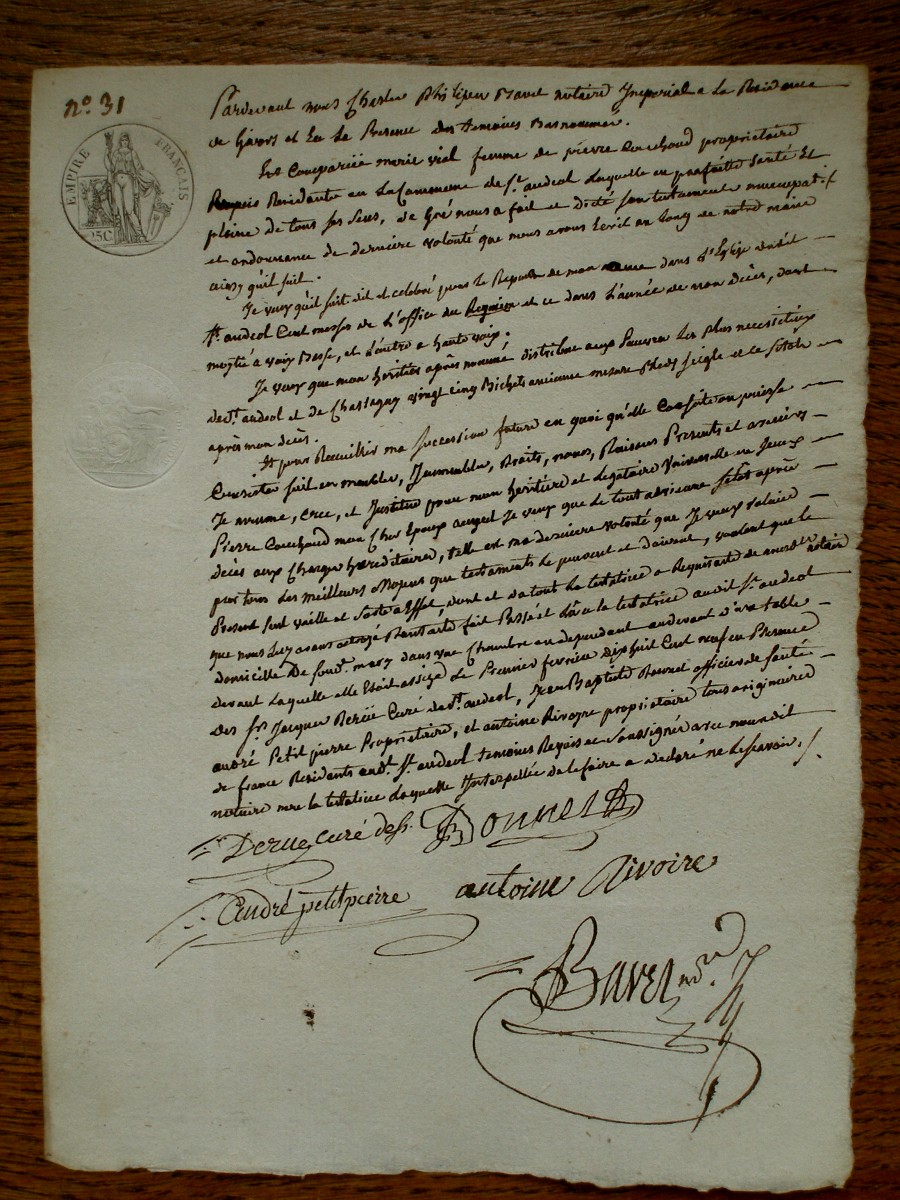 nº 31
EMPIRE FRANÇAIS
25C
Pardevant nous Charles Philipe Bavet notaire Imperial a La Residence
de Givors et En La Presence des temoins Basnommés.
Est Compariie marie vial femme de pierre Couchoud proprietaire
Residante en La Commune de St. andeol Laquelle en parfaitte Santé Et
pleine de tous ses sens, de Gré nous a fait et dicté son testament nuncupat. /
et ordonnance de derniere volonté que nous avons Ecrit au long de notre main
ainsy qu'il suit.
Je veux qu'il soit dit et celebré pour le Repos de mon ame dans L'Eglise dudit
St. andeol Cent messes de L'office du Requiem et ce dans L'année de mon décès, dont
moytié a voix Basse, et L'autre a haute voix.
Je veux que mon heritier après nommé, distribue aux pauvres Les plus necessiteux
de St. andeol et de Chassagny vingt cinq Bichets ancienne mesure Bled Seigle et ce sitot
après mon decès.
Et pour Recueillir ma succession future en quoi qu'elle Consiste ou puisse
Consister soit en meubles, Immeubles, Droits, noms, Raisons Presents et avenirs
Je nomme, cree, et Institue pour mon heritier et Legataire Universelle
Pierre Couchoud mon Cher Epoux auquel Je veux que Le tout advienne sitot après
decès aux Charges hereditaires, telle est ma derniere volonté que Je veux valoir
par tous Les meilleurs moyens que testaments Le peuvent et doivent, voulant que le
Present Soit vaille et Sorte a Effet, dont et du tout La testatrice a Requis acte de nousdt. notaire
que nous Luy avons octroyé Dont acte fait Passé et Lû a la testatrice audit St. andeol
domicille De sondt. mary dans une Chambre en dependant audevant d'une table
devant Laquelle elle Etait assize Le Premier fevrier dixhuit Cent neuf en Presence
des Srs. Jacques Curé de St. andeol, Jean Baptiste Bonnet officier de Santé
andré Petit pierre Proprietaire, et antoine Rivoyre proprietaire tous originaires
de france Residents audt. St. andeol temoins Requis et Soussignés avec nousdit
notaire non la testatrice Laquelle Interpellée de le faire a declaré ne Le Savoir. /.
curé de St. Bonnet
André petit pierre antoine Rivoire
Bavet nore.